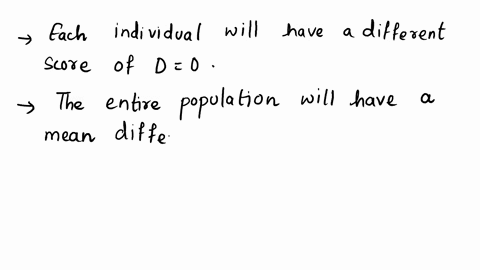 → Each individual will have a different
score of D = 0.
→ The entire population will have a
mean diffe